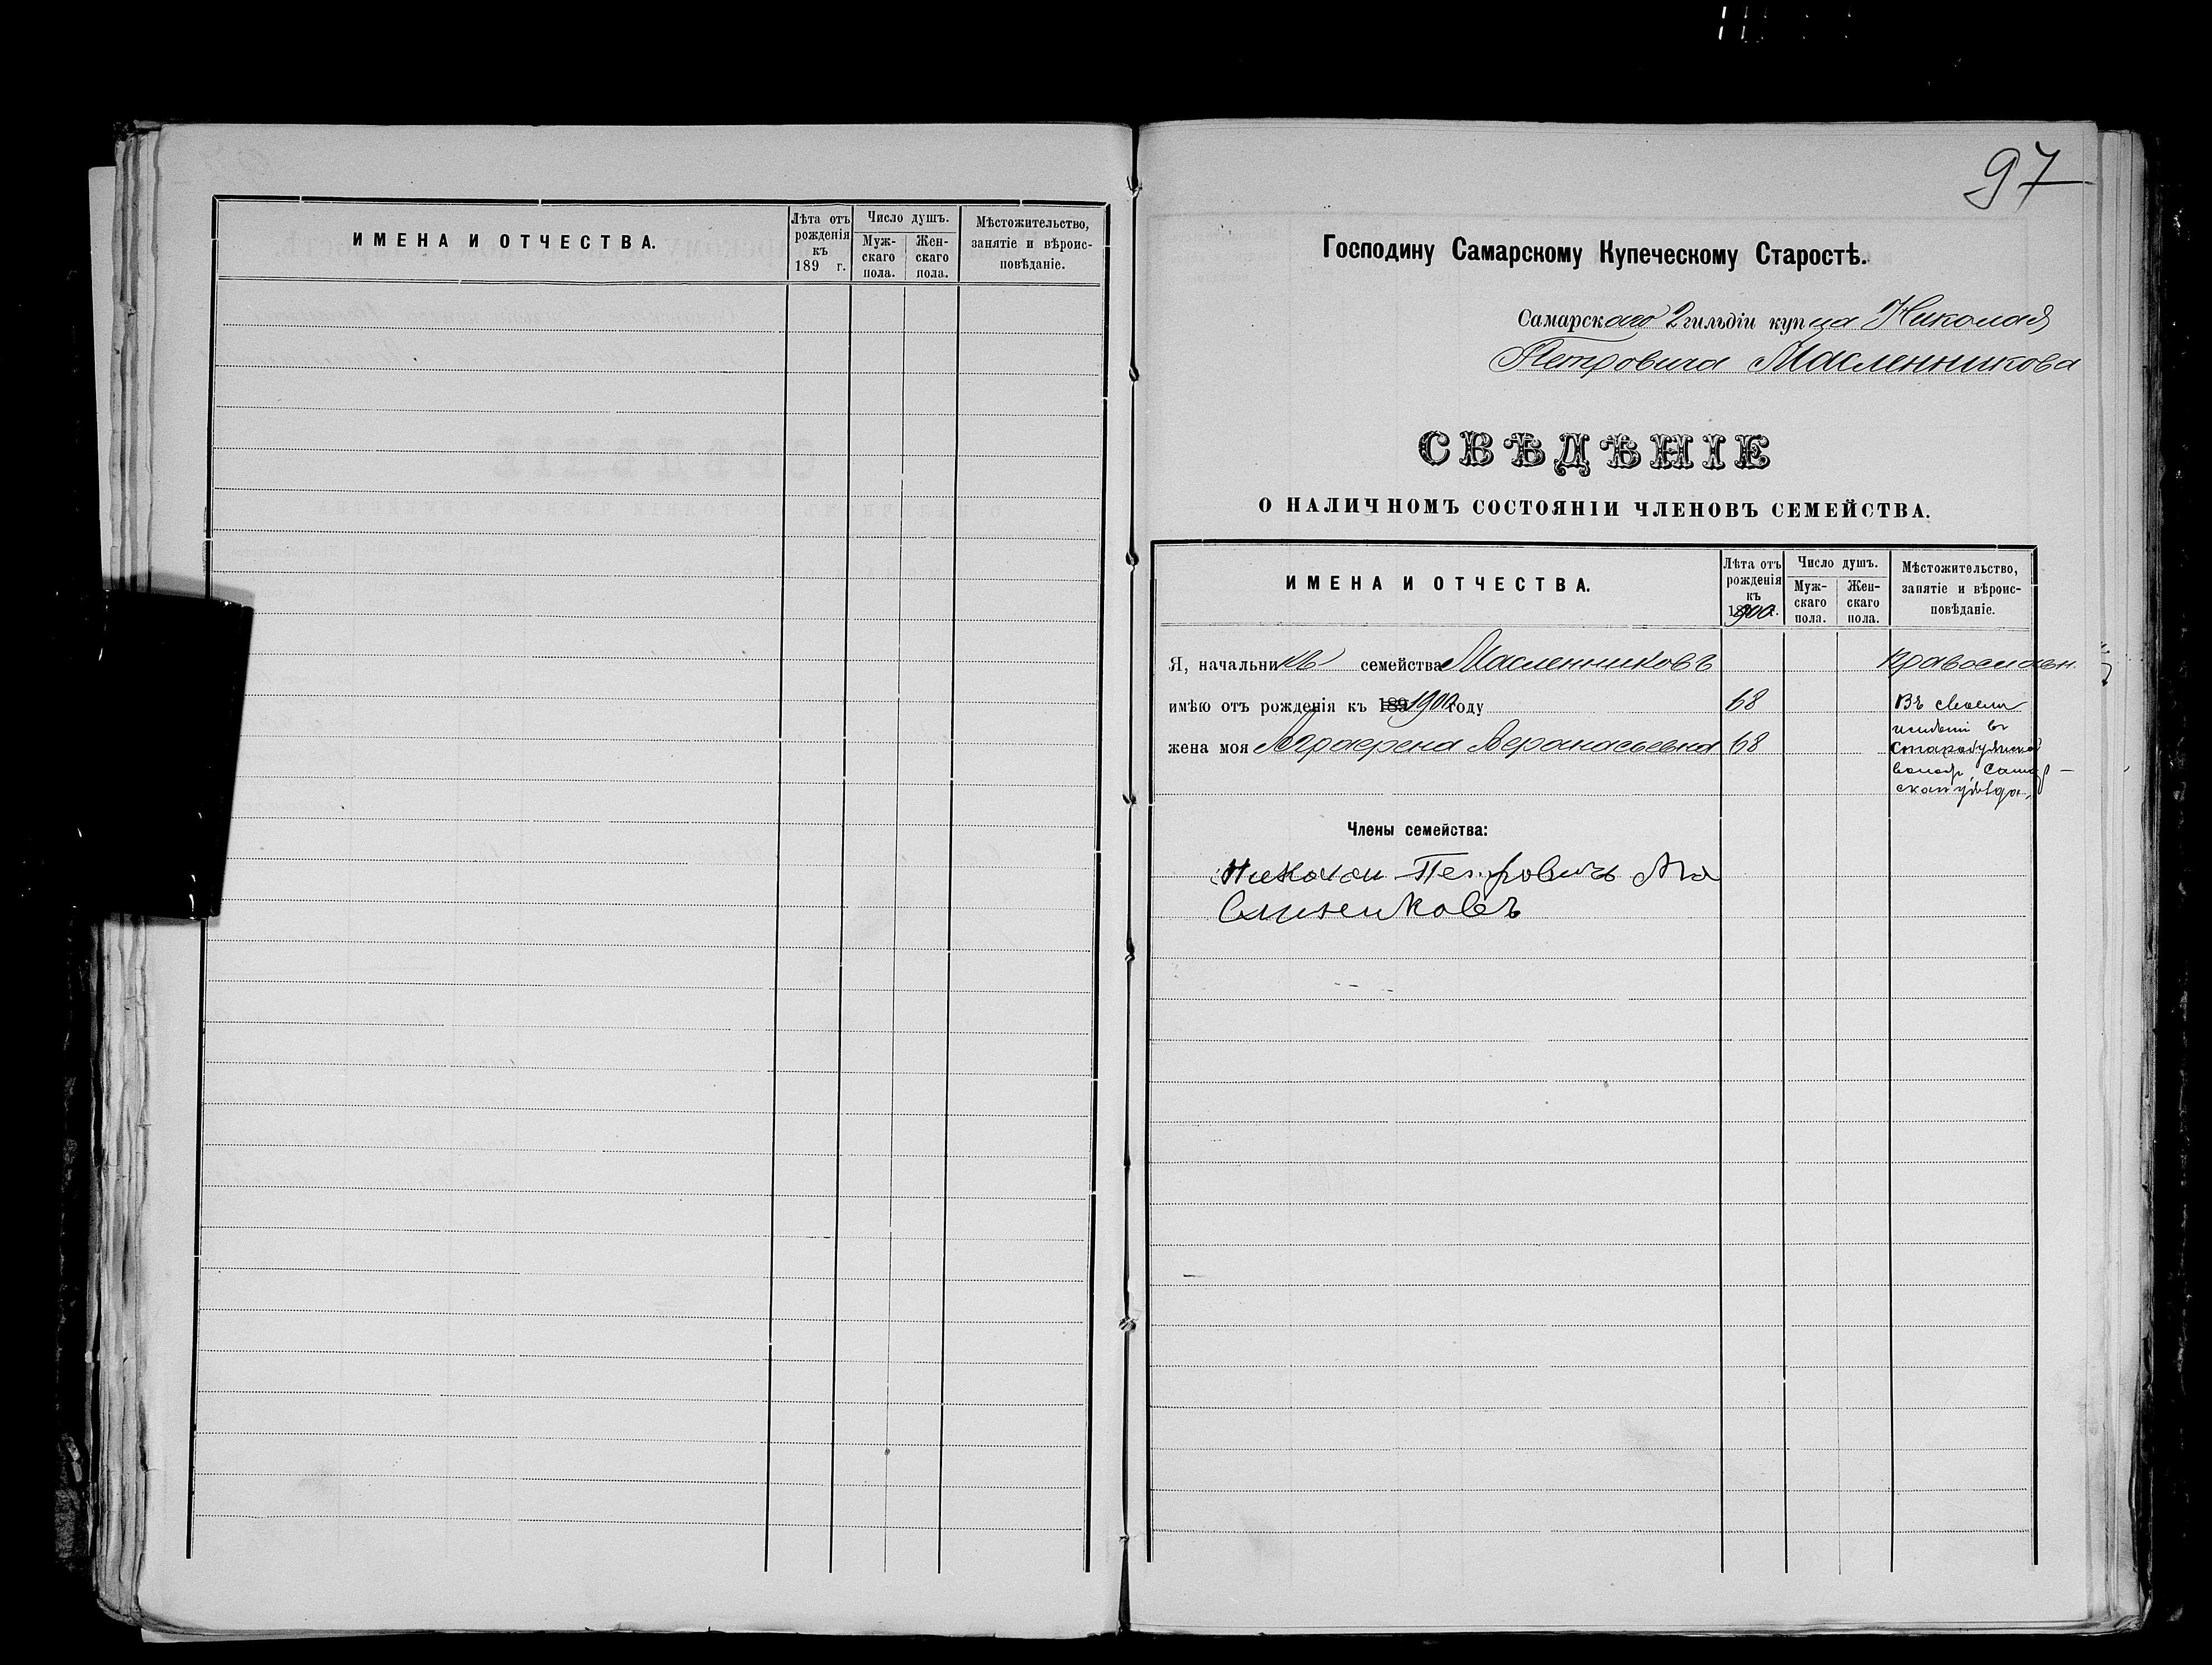 ИМЕНА И ОТЧЕСТВА.
Лѣта отъ рожденія къ 189 г.
Число душъ.
Мужскаго пола.
Женскаго пола.
Мѣстожительство, занятіе и вѣроисповѣданіе.
97
Господину Самарскому Купеческому Старостѣ.
Самарскаго 2 гильдіи купца Николая
Петровича Масленникова
СВѢДѢНІЕ
О НАЛИЧНОМЪ СОСТОЯНІИ ЧЛЕНОВЪ СЕМЕЙСТВА.
ИМЕНА И ОТЧЕСТВА.
Лѣта отъ
рожденія
къ
1900 г.
Число душъ.
Муж-
скаго
пола.
Жен-
скаго
пола.
Мѣстожительство,
занятіе и вѣроис-
повѣданіе.
Я, начальникъ семейства Масленниковъ православн.
имѣю отъ рожденія къ 189 1900 году 68 Въ своем
жена моя Аграфена Афанасьевна 68
имѣніи въ
волост, Самар-
ского уѣзда.
Члены семейства:
Николаи Петровичъ Ма
слинековъ